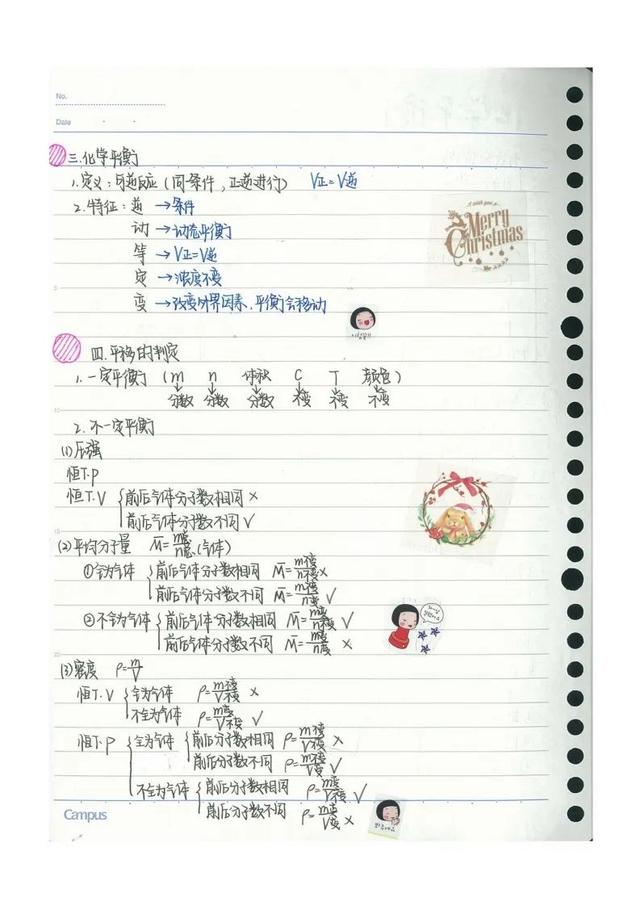 No.
Date
三.化学平衡
1.定义:可逆反应(同一条件,正逆进行) V正=V逆
2.特征:逆→条件
动→动态平衡
等→V正=V逆
定→浓度不变
变→改变外界因素,平衡会移动
Merry
Christmas
四.平移的判定
1.一定平衡(m n 体积 C T 颜色)
↓ ↓ ↓ ↓ ↓ ↓
分数 分数 分数 不变 不变 不变
2.不一定平衡
(1)压强
恒T.P
恒T.V {前后气体分子数相同 ×
前后气体分子数不同 √
(2)平均分子量 M̄=m总/n总(气体)
①全为气体 {前后气体分子数相同 M̄=m不变/n不变 ×
前后气体分子数不同 M̄=m不变/n变 √
②不全为气体 {前后气体分子数相同 M̄=m变/n不变 √
前后气体分子数不同 M̄=m变/n变 ×
(3)密度 ρ=m/V
恒T.V {全为气体 ρ=m不变/V不变 ×
不全为气体 ρ=m变/V不变 √
恒T.P {全为气体 {前后分子数相同 ρ=m不变/V不变 ×
前后分子数不同 ρ=m不变/V变 √
不全为气体 {前后气体分子数相同 ρ=m变/V不变 √
前后分子数不同 ρ=m变/V变 ×
Campus